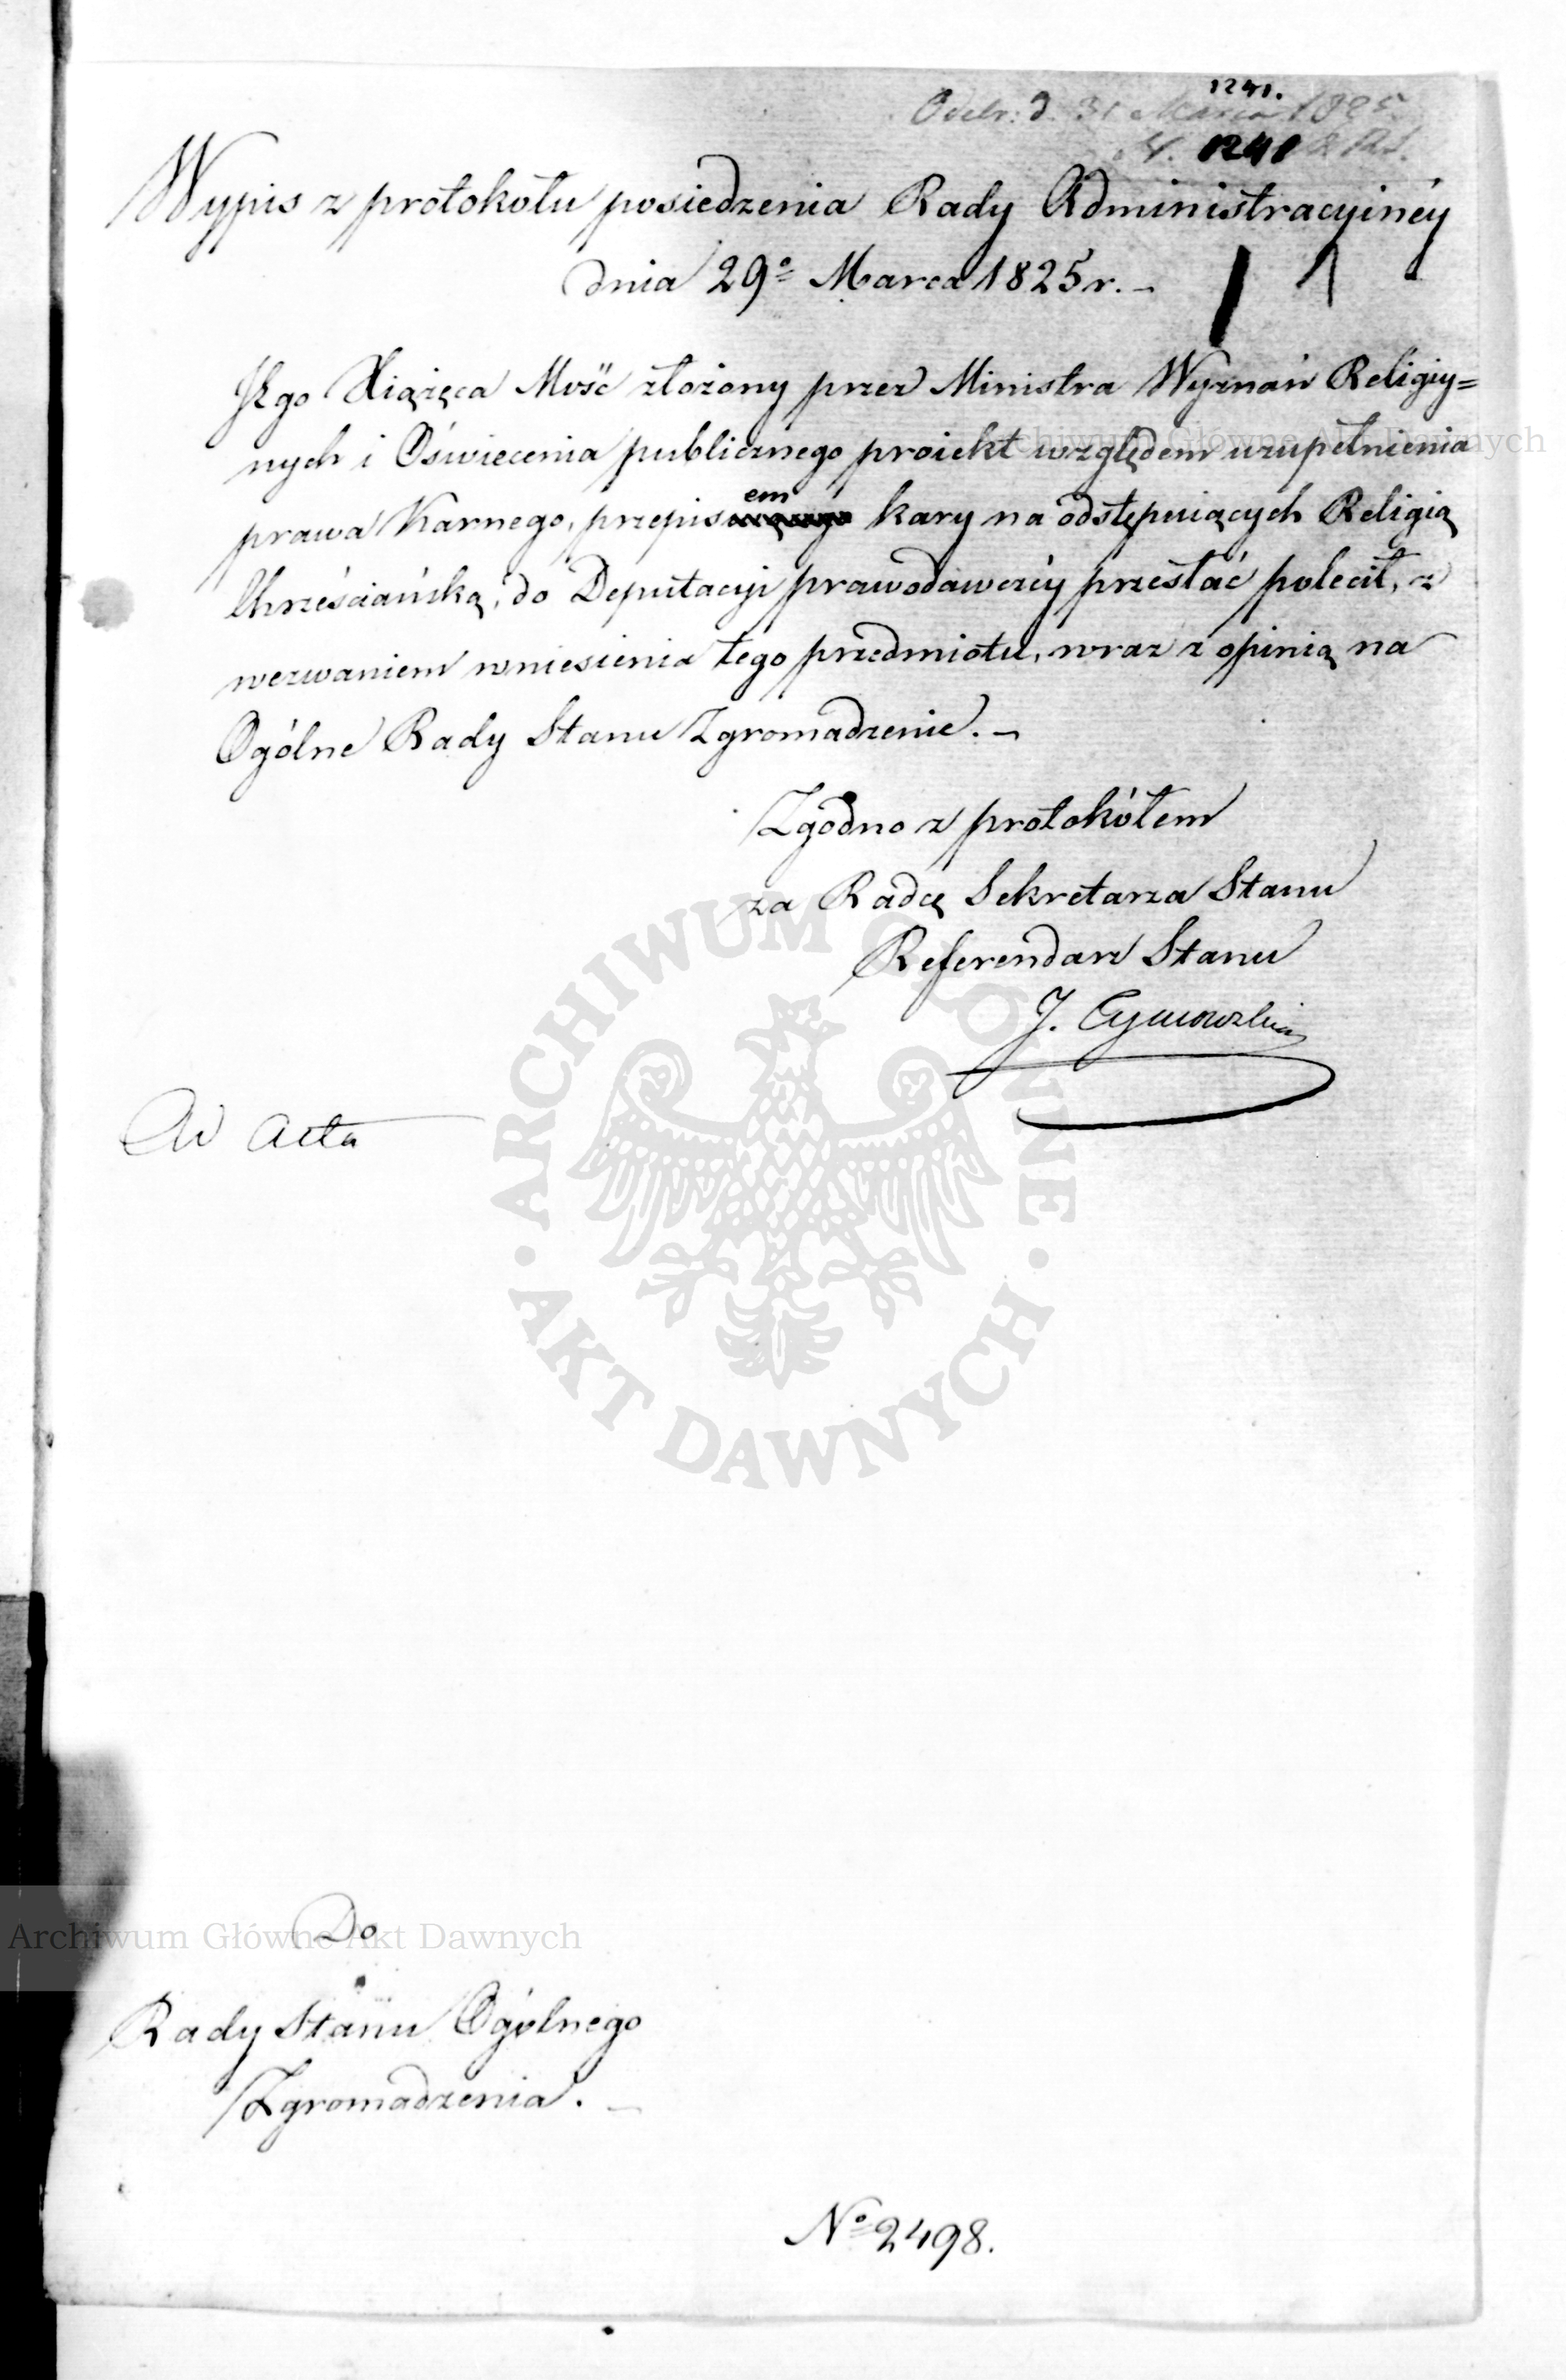 1241.
Odebr: d. 31 Marca 1825.
N. 1241
Wypis z protokołu posiedzenia Rady Administracyinéy
dnia 29º Marca 1825 r. –
1
JEgo Xiążęca Mość złożony przez Ministra Wyznań Religiy=
nych i Oświecenia publicznego proiekt względem uzupełnienia
prawa Karnego, przepisem kary na odstępuiących Religią
Chrześciańską, do Deputacyi prawodawczéy przesłać polecił, z
wezwaniem wniesienia tego przedmiotu, wraz z opinią na
Ogólne Rady Stanu Zgromadzenie. –
Zgodno z protokółem
za Radcę Sekretarza Stanu
Referendarz Stanu
J.
Ad Acta
ARCHIWUM GŁÓWNE
· AKT DAWNYCH ·
Archiwum Główne Akt Dawnych
Do
Archiwum Główne Akt Dawnych
Rady Stanu Ogólnego
Zgromadzenia. –
Nº 2498.